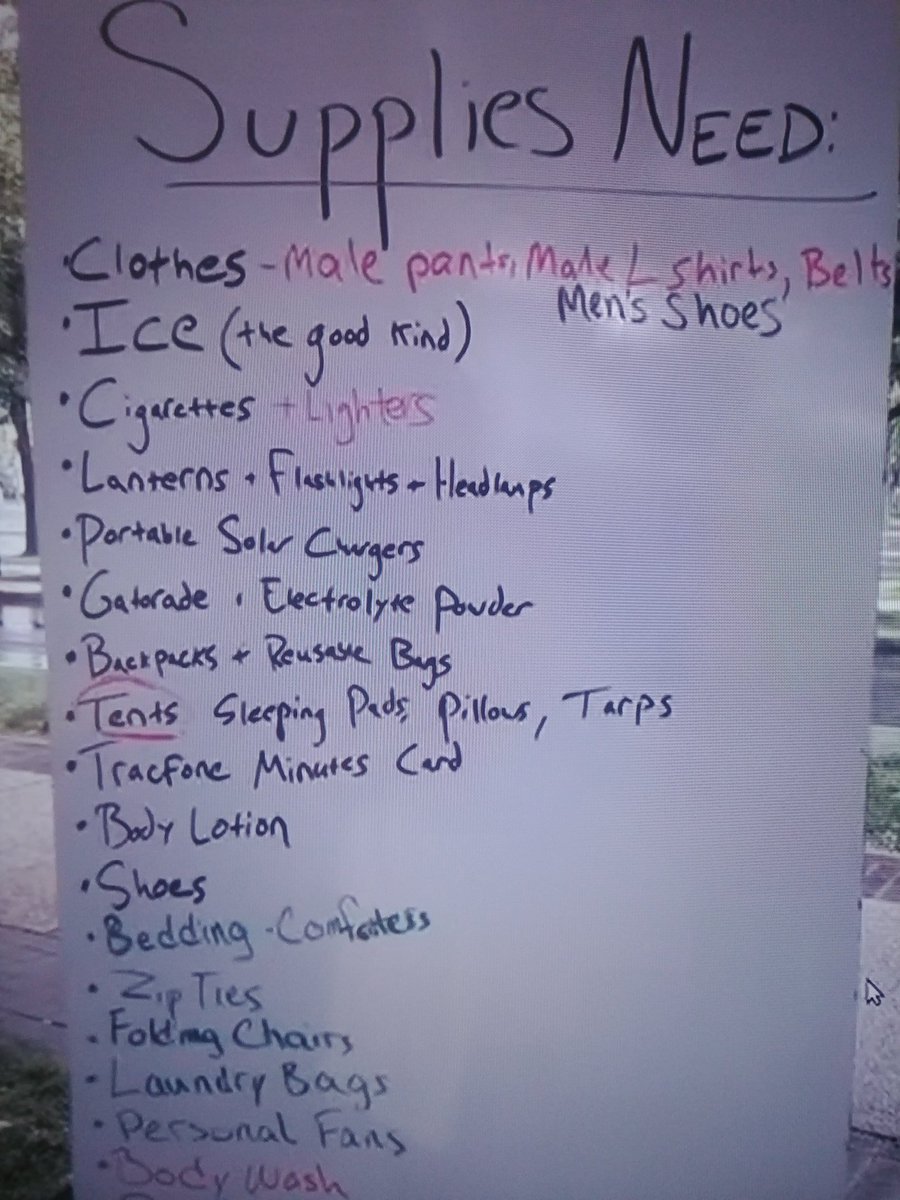 Supplies NEED:
· Clothes - Male pants, Male L shirts, Belts
Men's Shoes
· Ice (the good kind)
· Cigarettes + Lighters
· Lanterns + Flashlights + Headlamps
· Portable Solar Chargers
· Gatorade + Electrolyte Powder
· Backpacks + Reusable Bags
· Tents Sleeping Pads, Pillows, Tarps
· Tracfone Minutes Card
· Body Lotion
· Shoes
· Bedding - Comforters
· Zip Ties
· Folding Chairs
· Laundry Bags
· Personal Fans
· Body Wash